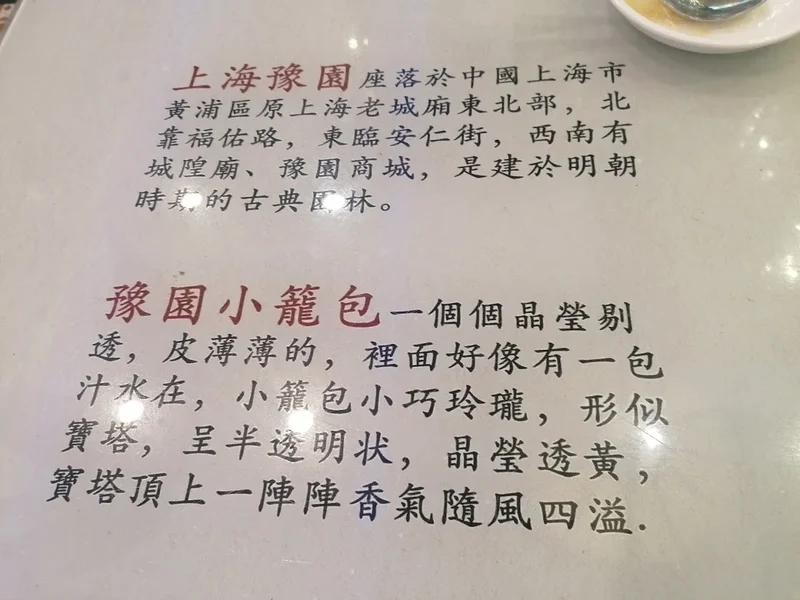 上海豫園座落於中國上海市
黃浦區原上海老城廂東北部，北
靠福佑路，東臨安仁街，西南有
城隍廟、豫園商城，是建於明朝
時期的古典園林。
豫園小籠包一個個晶瑩剔
透，皮薄薄的，裡面好像有一包
汁水在，小籠包小巧玲瓏，形似
寶塔，呈半透明狀，晶瑩透黃，
寶塔頂上一陣陣香氣隨風四溢.